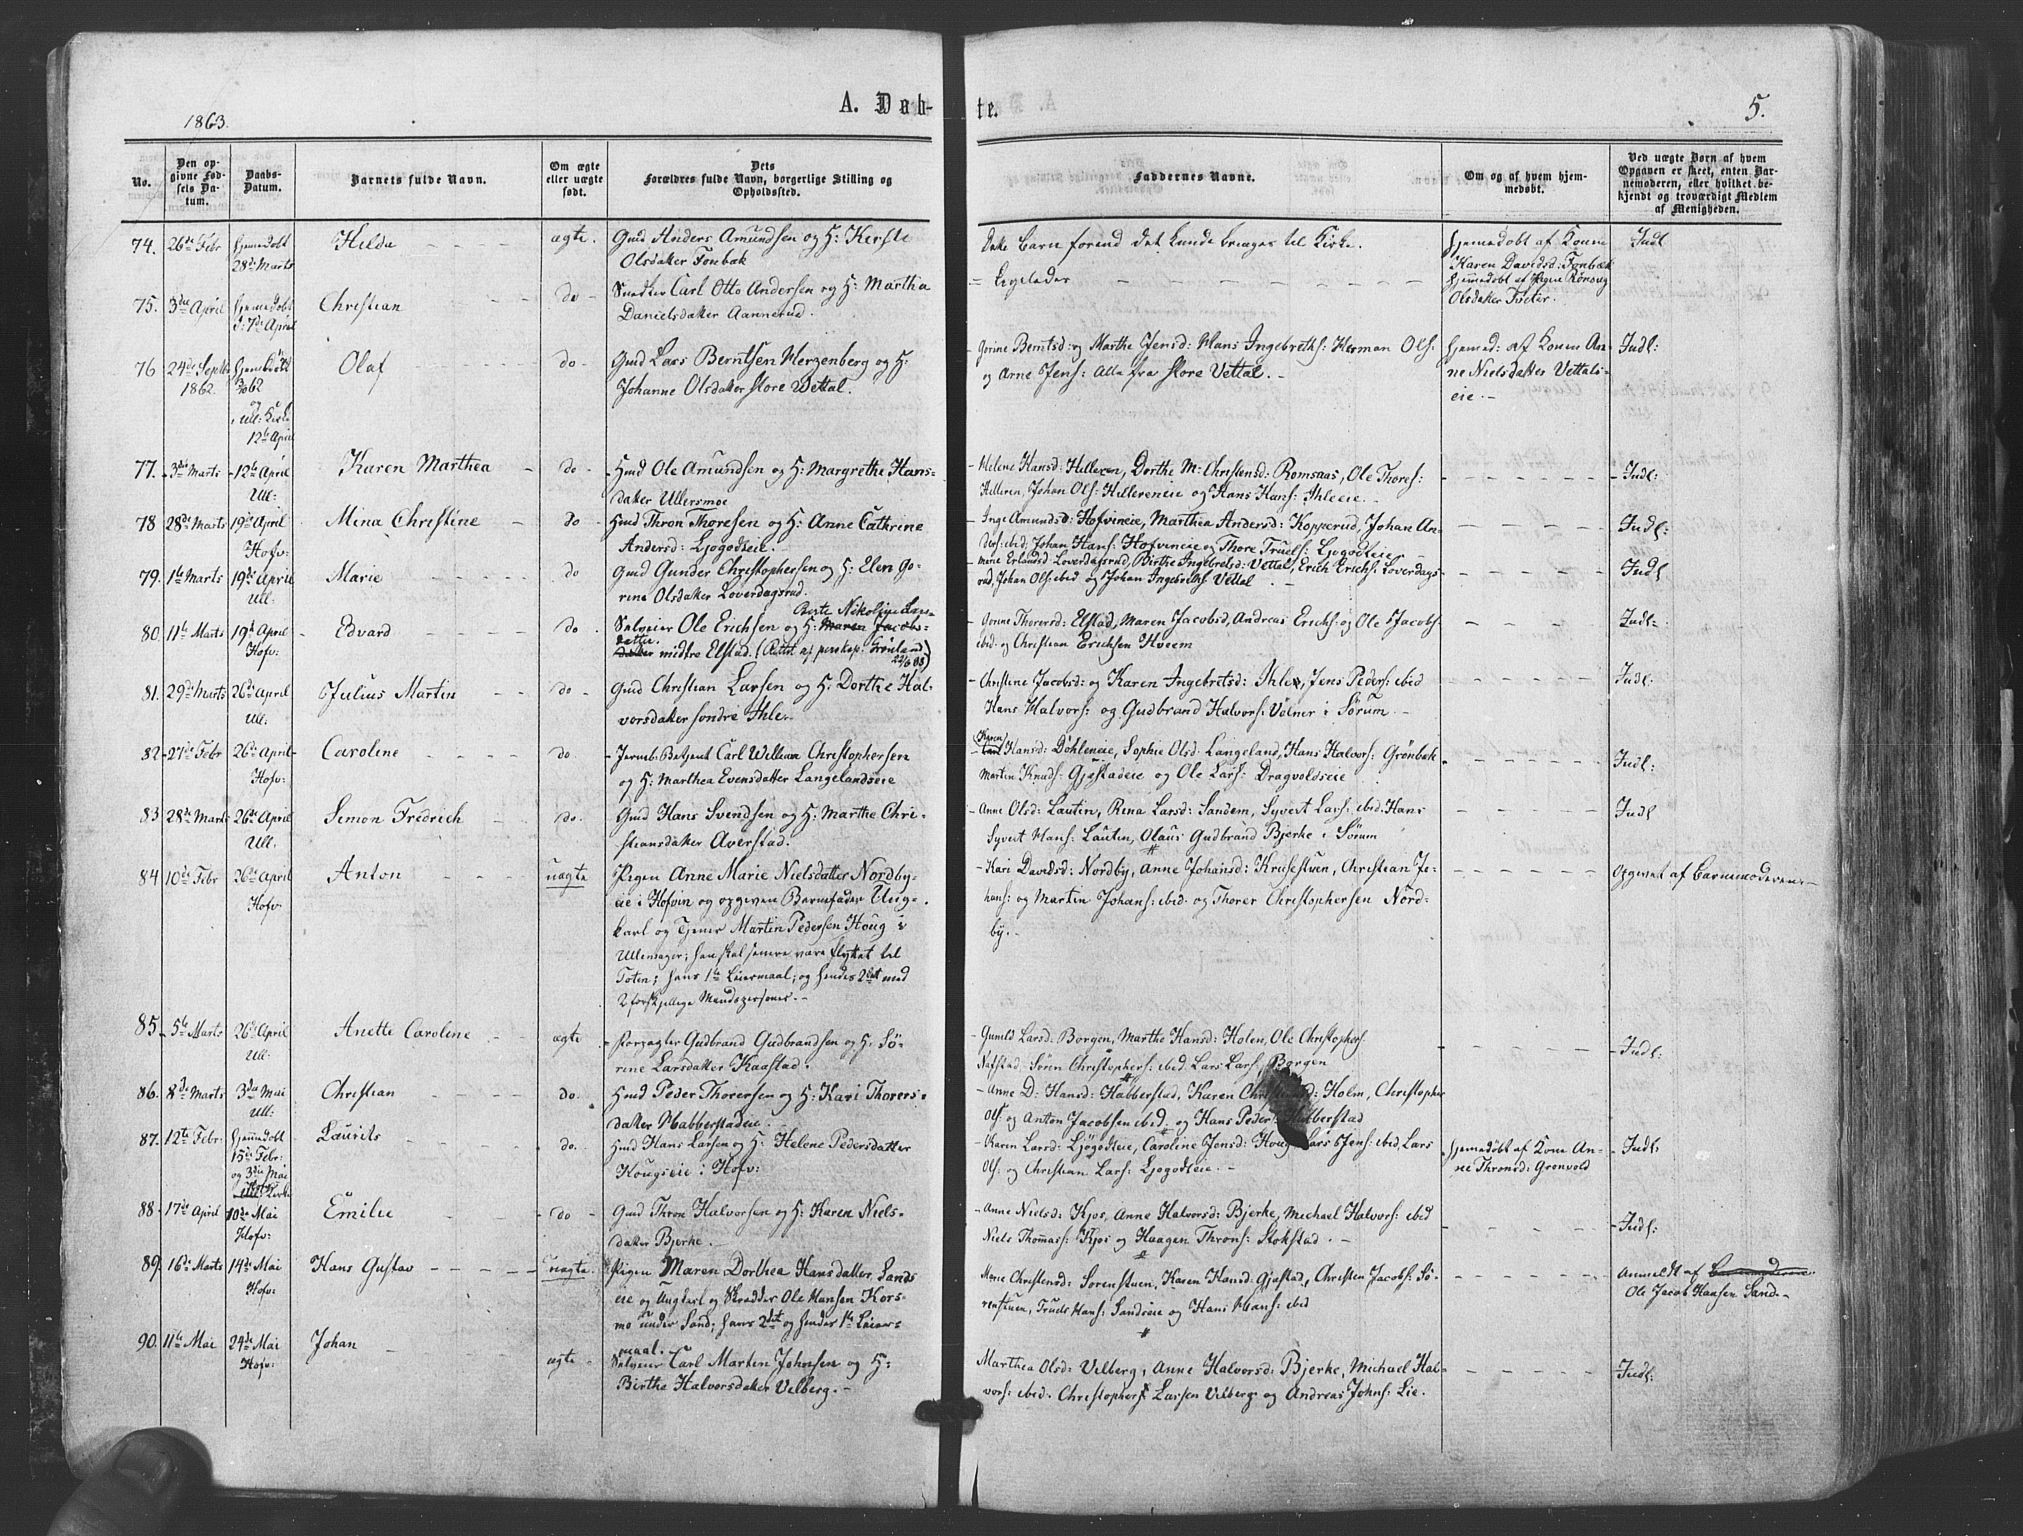 1863.
A. Døb-
te.
5.
No.
Den op-
givne Fød-
sels Da-
tum.
Daabs-
Datum.
Barnets fulde Navn.
Om ægte
eller uægte
født.
Dets
Forældres fulde Navn, borgerlige Stilling og
Opholdssted.
Faddernes Navne.
Om og af hvem hjem-
medøbt.
Ved uægte Børn af hvem
Opgaven er skeet, enten Bar-
nemoderen, eller hvilket be-
kjendt og troværdigt Medlem
af Menigheden.
74. 26de Febr hjemedøbt Helda ægte. Gmd Anders Amundsen og H: Kersti
28de Marts Olsdatter Fonbæk
Dette Barn forend det kunde bringes til Kirke. hjemedøbt af Konen Indl
Karen Davidsd: Fonbæk
75. 3die April hjemedøbt Christian do Carl Otto Andersen og H: Martha
d: 7de April Danielsdatter Aannerud.
= Ligeledes hjemedøbt af Pigen Rønnaug
Olsdatter Tveter.
76 24de Septbr hjemedøbt Olaf do Gmd Lars Berntsen Herzenberg og H
1862. 62 Johanne Olsdatter store Vettal.
og
i Ull: Kirke
12te April
Gorine Berntsd: og Marthe Jensd: Hans Ingebreths: Herman Ols: hjemed: af Konen An- Indl:
og Arne Jens: Alle fra store Vettal. ne Nielsdatter Vettals-
eie.
77. 3die Marts 12te April Karen Marthea do Hmd Ole Amundsen og H: Margrethe Hans-
Ull: datter Ullersmoe
Helene Hansd: Helleren, Dorthe M: Christensd: Romsaas, Ole Thores: Indl:
Helleren, Johan Ols: Hellereneie og Hans Hans: Ihleeie.
78 28de Marts 19de April Mina Christine do Hmd Thron Thoresen og H: Anne Cathrine
Hofv: Andersd: Ljogodteie.
Inge Amundsd: Hofvineie, Marthea Andersd: Kopperud, Johan An- Indl:
ders: ibid, Johan Hans: Hofvineie og Thore Truels: Ljogodteie
79. 1te Marts 19de April Marie do Gmd Gunder Christophersen og H: Elen Go-
Ull. rine Olsdatter Loverdagsrud.
Marie Erlandsd Loverdagsrud, Birthe Ingebretsd: Vettal, Erich Erichs: Loverdags Indl
rud, Johan Ols: ibid og Johan Ingebreths Vettal
80. 11te Marts 19de April Edvard do Selveier Ole Erichsen og H: Maren Jacobs-
Berte Nikoline Lar-
Hofv: datter midtre Elstad. (Rettet af perskap. Grønland
22/6 88)
Gonne Thorersd: Elstad, Maren Jacobsd, Andreas Erichs: og Ole Jacobs Indl:
ibid. og Christian Erichsen Hveem
81. 29de Marts 26de April Julius Martin do Gmd Christian Larsen og H: Dorthe Hal-
Ull. vorsdatter sondre Ihle.
Christine Jacobsd: og Karen Ingebretsd: Ihle, Jens Peders: ibid Indl:
Hans Halvors: og Gudbrand Halvors: Velner i Sørum.
82 27de Febr 26de April Caroline do. Jernb: Betjent Carl William Christophersen
Hofv: og H: Marthea Evensdatter Langelandseie
Karen
Hansd: Døhleneie, Sophie Olsd: Langeland, Hans Halvors: Grønbæk Indl:
Martin Knuds: Gjøstadeie og Ole Lars: Dragvoldseie
83 28de Marts 26de April Simon Fredrich do. Gmd Hans Svendsen og H: Marthe Chri-
Ull. stiansdatter Averstad.
Anne Olsd: Lautin, Rina Larsd: Sandem, Syvert Lars: ibid. Hans Indl
Syvert Hans: Lautin, Olaus Gudbrand Bjerke i Sørum
84 10de Febr 26de April Anton uægte Pigen Anne Marie Nielsdatter Nordby-
Hofv eie i Hofvin og opgiven Barnefader Ung-
karl og Tjener Martin Pedersen Houg i
Ullensager; han skal senere være flyttet til
Toten; hans 1te Leiermaal, og hendes 2det med
2 forskjellige Mandspersoner.
Kari Davidsd: Nordby, Anne Johansd: Krusestuen, Christian Jo- Opgivet af Barnemoderen
hans: og Martin Johans: ibid. og Thorer Christophersen Nord-
by.
85. 5te Marts 26de April Anette Caroline ægte Forpagter Gudbrand Gudbrandsen og H: Sø-
Ull: rine Larsdatter Kaastad.
Gunild Larsd: Borgen, Marthe Hansd: Holen, Ole Christophers: Indl:
Nafstad, Søren Christophers: ibid. Lars Lars: Borgen
86. 8de Marts 3die Mai Christian do. Hmd Peder Thorersen og H: Kari Thorers-
Ull: datter Habberstadeie.
Anne D: Hansd: Habberstad, Karen Holm, Christopher
Ols: og Anton Jacobsen ibid. og Hans Peder Habberstad
87. 12te Febr. hjemedøbt Laurits do. Hmd Hans Larsen og H: Helene Pedersdatter
15de Febr: Hougseie i Hofv:
og 3die Mai
Hofv:
Kirke
Karen Larsd: Ljøgodteie, Caroline Jensd: Houg Lars Jens: ibid, Lars hjemedøbt af Kone An- Indl:
Ols: og Christian Lars: Ljogodteie. ne Thronsd: Gronvold
88 17de April 10de Mai Emilie do Gmd Thron Halvorsen og H: Karen Niels-
Hofv: datter Bjerke.
Anne Nielsd: Kjos, Anne Halvorsd: Bjerke, Michael Halvors: ibid Indl:
Niels Thomass: Kjos og Haagen Throns: Stokstad.
89. 16de Marts 14de Mai Hans Gustav uægte Pigen Maren Dorthea Hansdatter Sands
Hofv: eie og Ungkarl og Skrædder Ole Hansen Kors-
mo under Sand; hans 2det og hendes 1te Leier-
maal.
Marie Christensd: Sorenstuen, Karen Hansd: Gjøstad, Christen Jacobs: Sø- Anmeldt af Barnemoderen
renstuen, Truels Hans: Sandseie og Hans Hans: ibid Ole Jacob Hansen Sand
90. 11te Mai 24de Mai Johan ægte Selveier Carl Martin Johnsen og H:
Hofv: Birthe Halvorsdatter Velberg.
Marthea Olsd: Velberg, Anne Halvorsd: Bjerke, Michael Hal- Indl:
vors: ibid. Christophers Larsen Velberg og Andreas Johns: Lie.